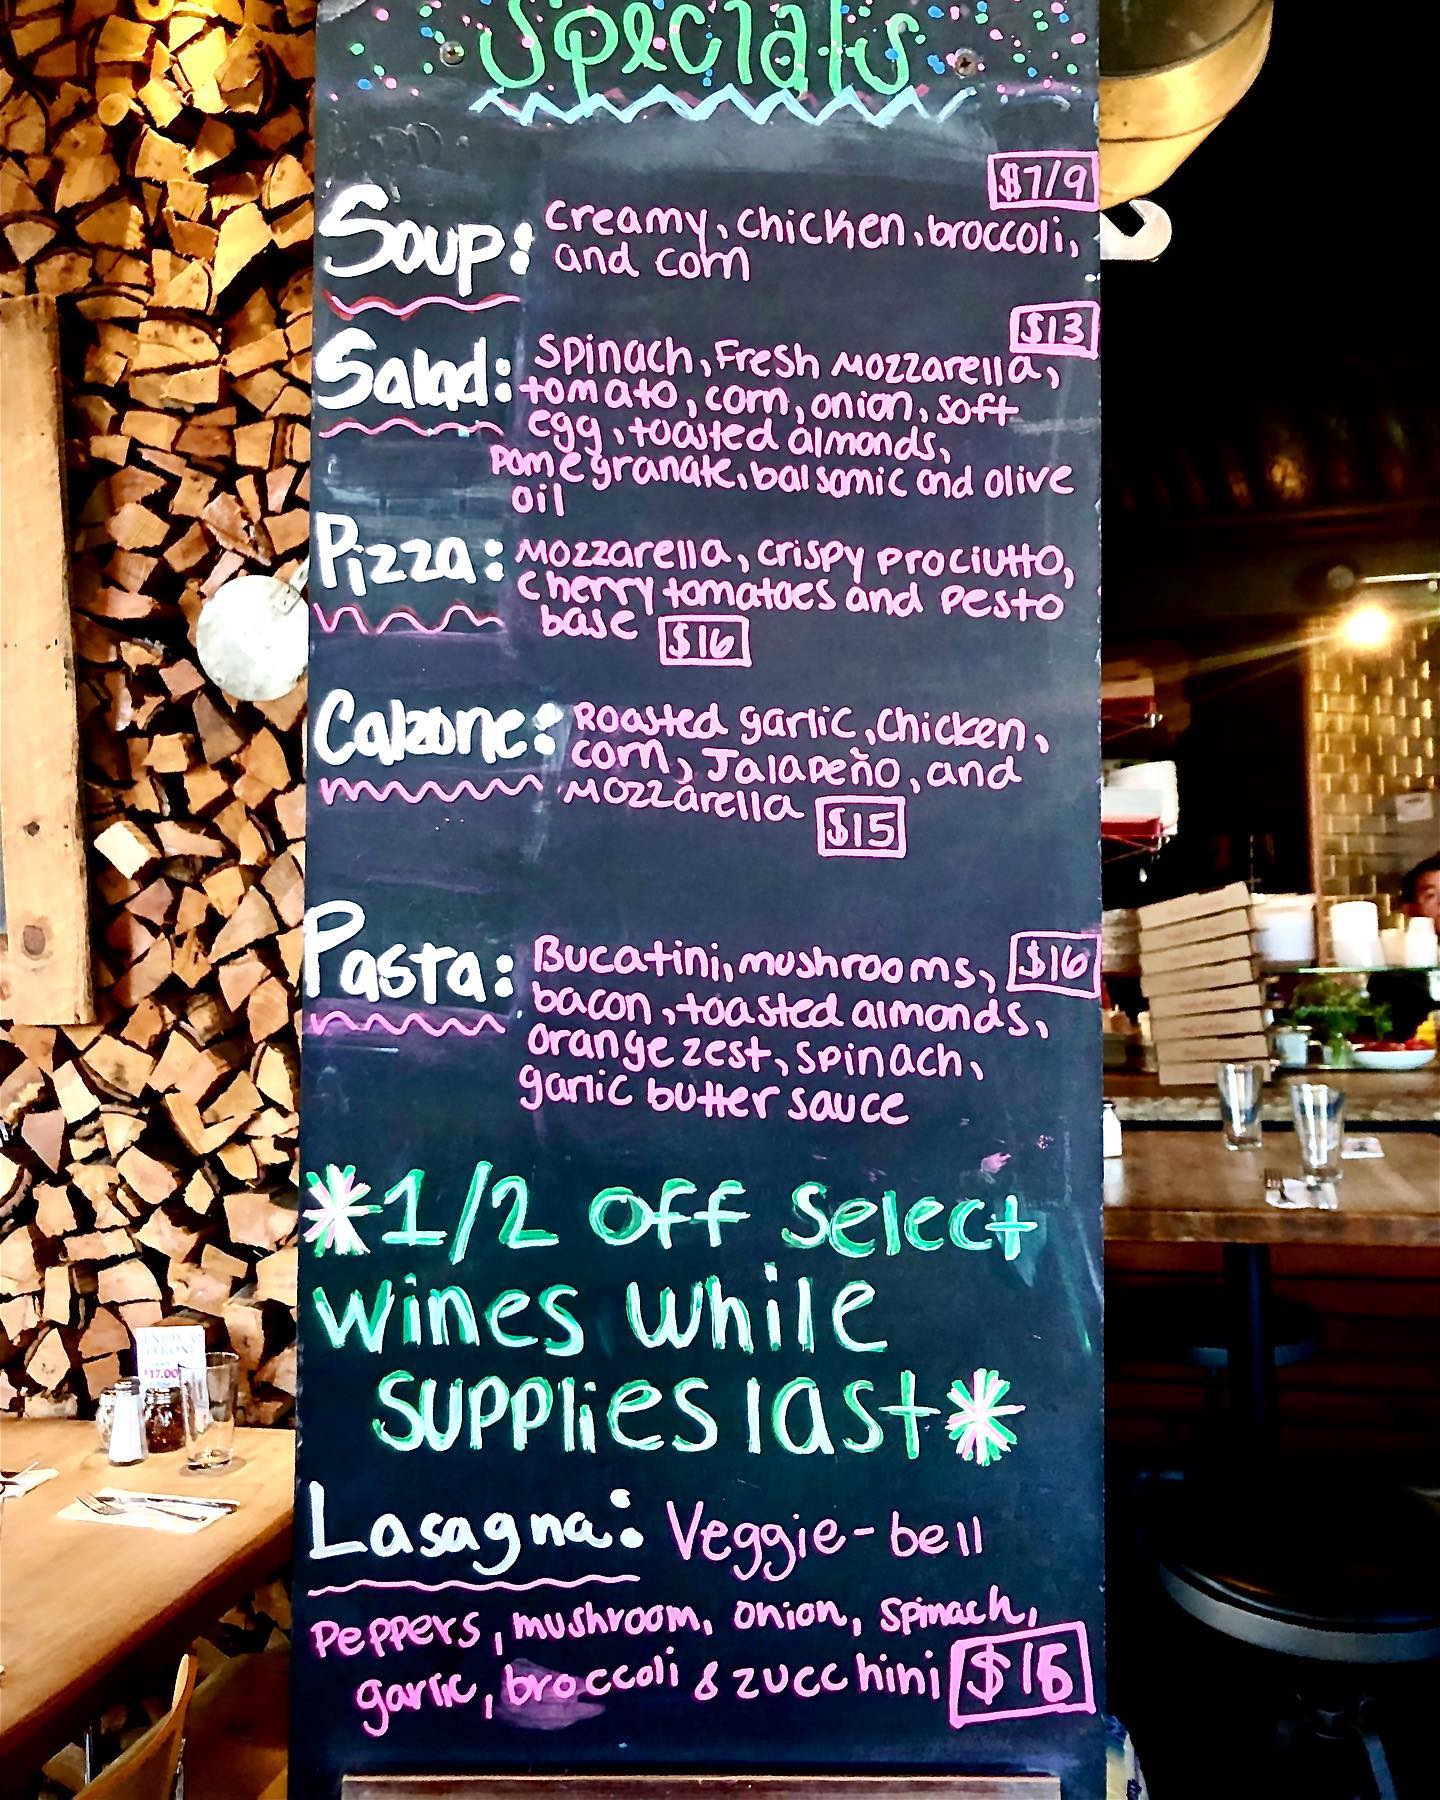 Specials
$7/9
Soup: creamy, chicken, broccoli,
and corn
$13
Salad: Spinach, Fresh Mozzarella,
tomato, corn, onion, soft
egg, toasted almonds,
pomegranate, balsamic and olive
oil
Pizza: Mozzarella, crispy prociutto,
cherry tomatoes and pesto
base $16
Calzone: Roasted garlic, Chicken,
corn, Jalapeño, and
Mozzarella $15
Pasta: Bucatini, mushrooms, $16
bacon, toasted almonds,
orange zest, spinach,
garlic butter sauce
*1/2 off select
wines while
supplies last*
Lasagna: Veggie-bell
Peppers, mushroom, onion, spinach,
garlic, broccoli & zucchini
$17.00